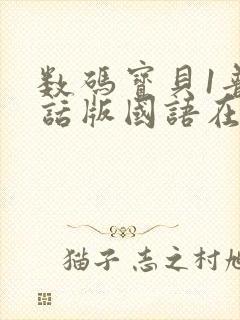 数碼寶貝1普
話版國語在
猫子 志之村旭